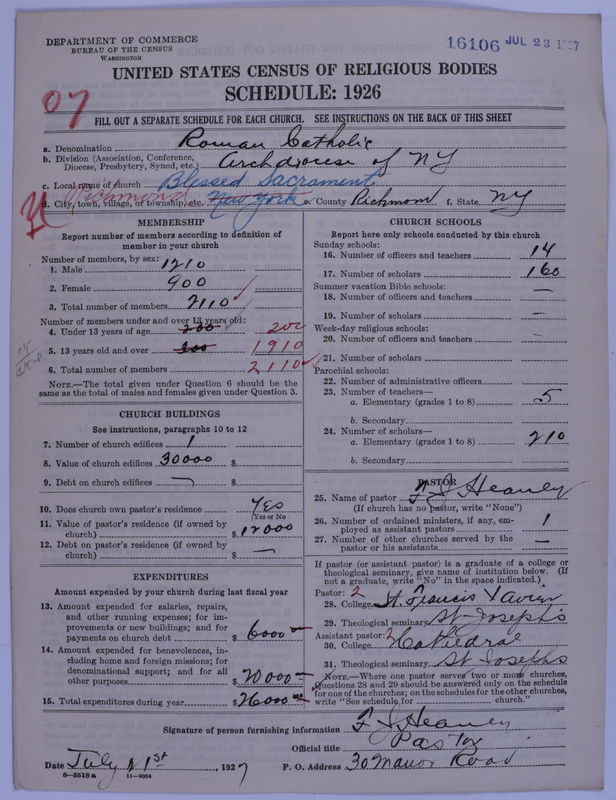 DEPARTMENT OF COMMERCE
BUREAU OF THE CENSUS
WASHINGTON
16106 JUL 23 1927
UNITED STATES CENSUS OF RELIGIOUS BODIES
SCHEDULE: 1926
07
FILL OUT A SEPARATE SCHEDULE FOR EACH CHURCH. SEE INSTRUCTIONS ON THE BACK OF THIS SHEET
a. Denomination Roman Catholic
b. Division (Association, Conference, Diocese, Presbytery, Synod, etc.) Archdiocese of NY
c. Local name of church Blessed Sacrament
d. City, town, village, or township, etc. Richmond New York e. County Richmond f. State NY
MEMBERSHIP
Report number of members according to definition of
member in your church
Number of members, by sex:
1. Male 1210
2. Female 900
3. Total number of members 2110
Number of members under and over 13 years old:
4. Under 13 years of age 200 200
5. 13 years old and over 300 1910
6. Total number of members 2110
NOTE.—The total given under Question 6 should be the
same as the total of males and females given under Question 3.
CHURCH BUILDINGS
See instructions, paragraphs 10 to 12
7. Number of church edifices 1
8. Value of church edifices 30000 $
9. Debt on church edifices — $
10. Does church own pastor's residence Yes
(Yes or No)
11. Value of pastor's residence (if owned by
church) $ 12000
12. Debt on pastor's residence (if owned by
church) $ —
EXPENDITURES
Amount expended by your church during last fiscal year
13. Amount expended for salaries, repairs,
and other running expenses; for im-
provements or new buildings; and for
payments on church debt $ 6000
14. Amount expended for benevolences, in-
cluding home and foreign missions; for
denominational support; and for all
other purposes $ 20000
15. Total expenditures during year $ 26000
CHURCH SCHOOLS
Report here only schools conducted by this church
Sunday schools:
16. Number of officers and teachers 14
17. Number of scholars 160
Summer vacation Bible schools:
18. Number of officers and teachers —
19. Number of scholars —
Week-day religious schools:
20. Number of officers and teachers —
21. Number of scholars
Parochial schools:
22. Number of administrative officers
23. Number of teachers—
a. Elementary (grades 1 to 8) 5
b. Secondary
24. Number of scholars—
a. Elementary (grades 1 to 8) 210
b. Secondary
PASTOR
25. Name of pastor F J Heaney
(If church has no pastor, write "None")
26. Number of ordained ministers, if any, em-
ployed as assistant pastors 1
27. Number of other churches served by the
pastor or his assistants —
If pastor (or assistant pastor) is a graduate of a college or
theological seminary, give name of institution below. (If
not a graduate, write "No" in the space indicated.)
Pastor: 2
28. College St. Francis Xavier
29. Theological seminary St Joseph's
Assistant pastor: 2
30. College Cathedral
31. Theological seminary St Josephs
NOTE.—Where one pastor serves two or more churches,
Questions 28 and 29 should be answered only on the schedule
for one of the churches; on the schedules for the other churches,
write "See schedule for church."
Signature of person furnishing information F J Heaney
Official title Pastor
Date July 21st, 1927 P. O. Address 30 Manor Road
8—5518 a 11—9054